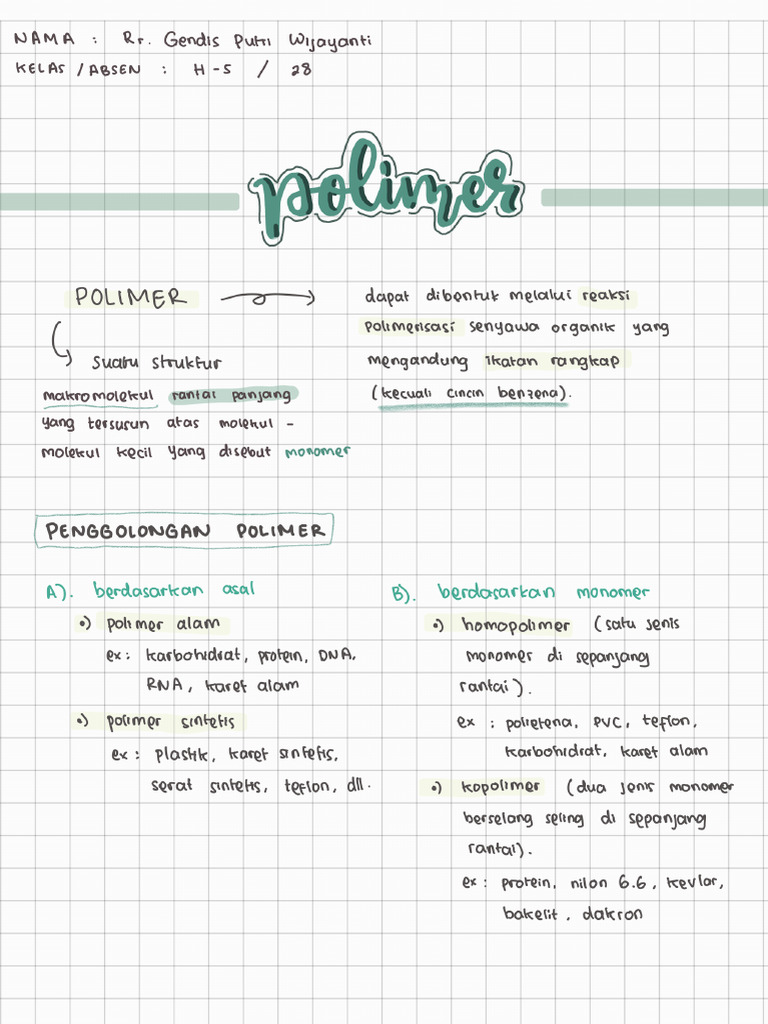 NAMA : Rr. Gendis Putri Wijayanti
KELAS / ABSEN : H-5 / 28
polimer
POLIMER
suatu struktur
makromolekul rantai panjang
yang tersusun atas molekul -
molekul kecil yang disebut monomer
dapat dibentuk melalui reaksi
polimerisasi senyawa organik yang
mengandung ikatan rangkap
(kecuali cincin benzena).
PENGGOLONGAN POLIMER
A). berdasarkan asal
•) polimer alam
ex : karbohidrat, protein, DNA,
RNA, karet alam
•) polimer sintetis
ex : plastik, karet sintetis,
serat sintetis, teflon, dll.
B). berdasarkan monomer
•) homopolimer (satu jenis
monomer di sepanjang
rantai).
ex : polietena, PVC, teflon,
karbohidrat, karet alam
•) kopolimer (dua jenis monomer
berselang seling di sepanjang
rantai).
ex : protein, nilon 6.6, kevlar,
bakelit, dakron